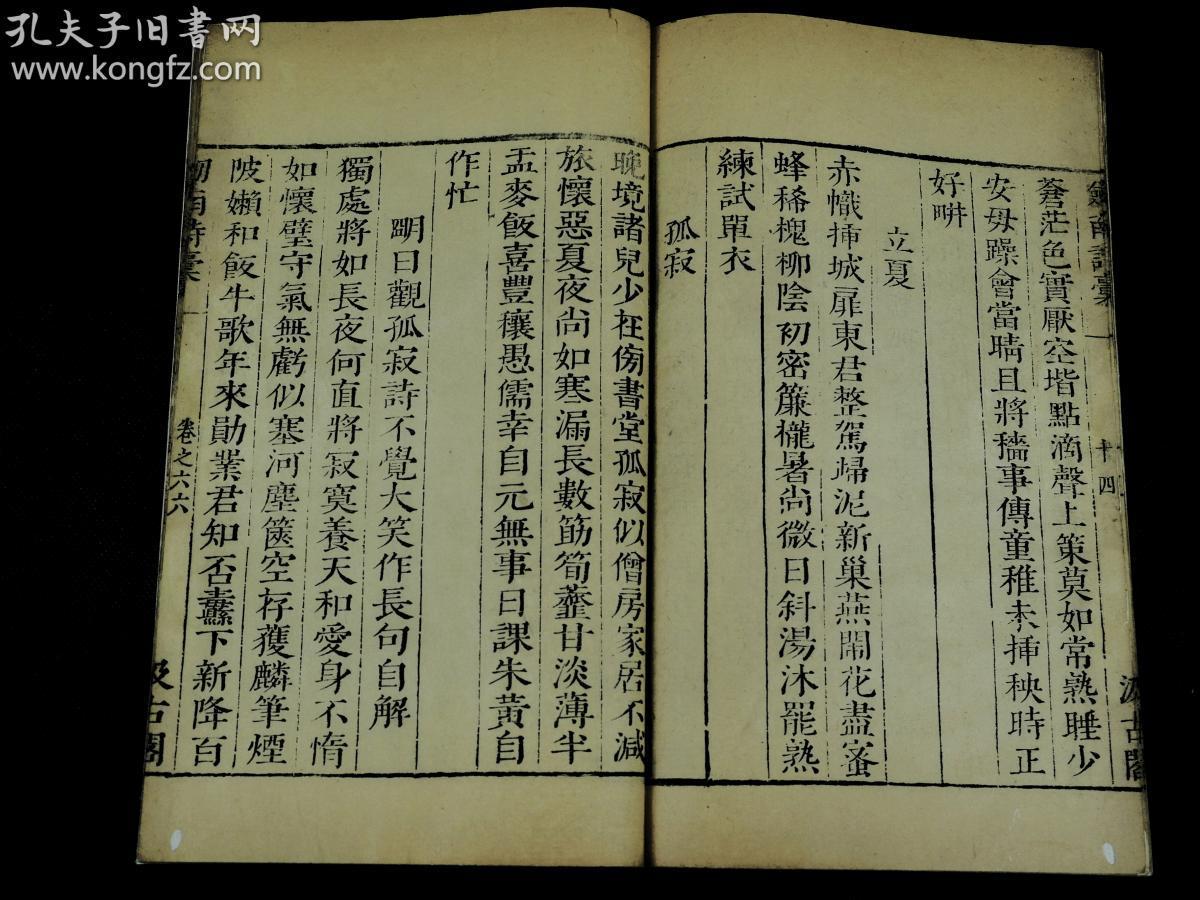 孔夫子旧书网
www.kongfz.com
劍南詩稾一
十四
汲古閣
蒼茫色實厭空堦點滴聲上策莫如常熟睡少
安毋躁會當晴且將穡事傳童稚未揷秧時正
好畊
立夏
赤幟揷城扉東君整駕歸泥新巢燕鬧花盡蜜
蜂稀槐柳陰初密簾櫳暑尚微日斜湯沐罷熟
練試單衣
孤寂
晚境諸兒少在傍書堂孤寂似僧房家居不減
旅懷惡夏夜尚如寒漏長數筯筍虀甘淡薄半
盂麥飯喜豐穰愚儒幸自元無事日課朱黃自
作忙
明日觀孤寂詩不覺大笑作長句自解
獨處將如長夜何直將寂寞養天和愛身不惰
如懷璧守氣無虧似塞河塵篋空存獲麟筆煙
陂嬾和飯牛歌年來勛業君知否纛下新降百
劍南詩稾
卷之六六
汲古閣